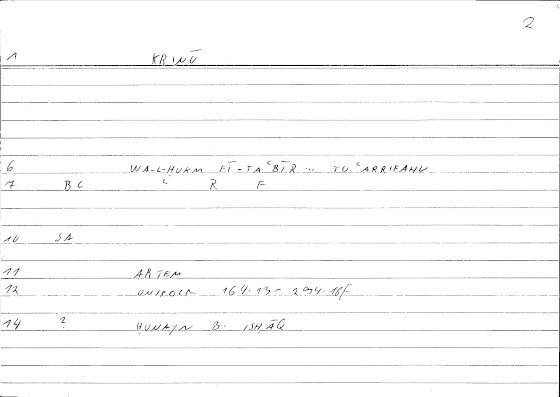 2
1 KRINŪ
6 WA-L-ḤUKM FĪ-TAʿBĪR ... TUʿARRIFAHU
7 BC ʿ R F
10 SA
11 ARTEM
12 ONIROCR 164.13 - 294.16f
14 ? ḤUNAYN B. ISḤĀQ